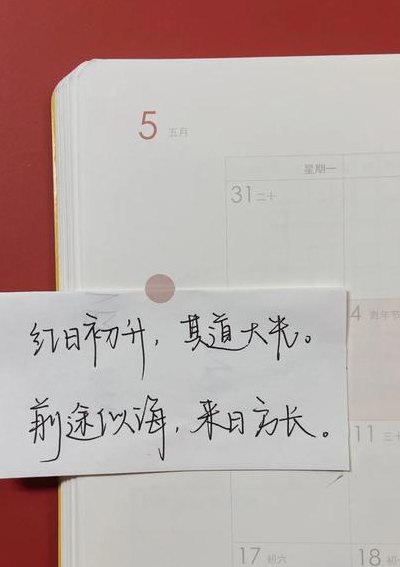 5 五月
星期一
31 二十
红日初升，其道大光。
4 青年节
前途似海，来日方长。
11 三十
17 初六
18 初